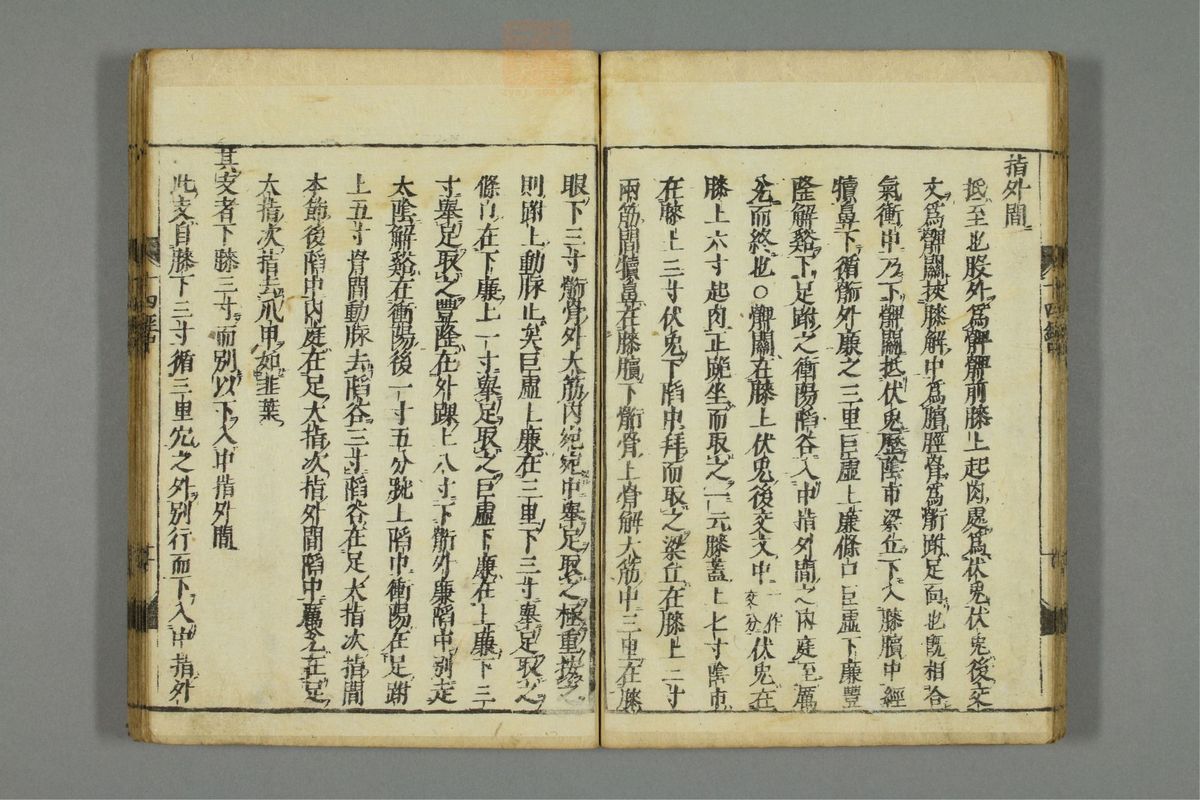 指外間
抵至也股外為髀髀前膝上起肉處為伏兎伏兎後交
文為髀關挾膝解中為臏脛骨為䯒跗足面也既相合
氣衝中乃下髀關抵伏兎歷陰市梁丘下入膝臏中經
犢鼻下循䯒外廉之三里巨虛上廉條口巨虛下廉豐
隆解谿下足跗之衝陽陷谷入中指外間之内庭至厲
兊而終也○髀關在膝上伏兎後交文中一作交分伏兎在
膝上六寸起肉正跪坐而取之一云膝蓋上七寸陰市
在膝上三寸伏兎下陷中拜而取之梁丘在膝上二寸
兩筋間犢鼻在膝臏下䯒骨上骨解大筋中三里在膝
眼下三寸䯒骨外大筋内宛宛中舉足取之極重按之
則跗上動脉止矣巨虛上廉在三里下三寸舉足取之
條口在下廉上一寸舉足取之巨虛下廉在上廉下三
寸舉足取之豐隆在外踝上八寸下䯒外廉陷中別走
太陰解谿在衝陽後一寸五分踠上陷中衝陽在足跗
上五寸骨間動脉去陷谷三寸陷谷在足大指次指間
本節後陷中内庭在足大指次指外間陷中厲兊在足
大指次指去爪甲如韭葉
其支者下膝三寸而別以下入中指外間
此支自膝下三寸循三里穴之外別行而下入中指外
十四經中
十四經中